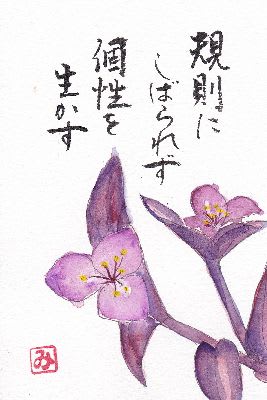 規則に
しばられず
個性を
生かす
み